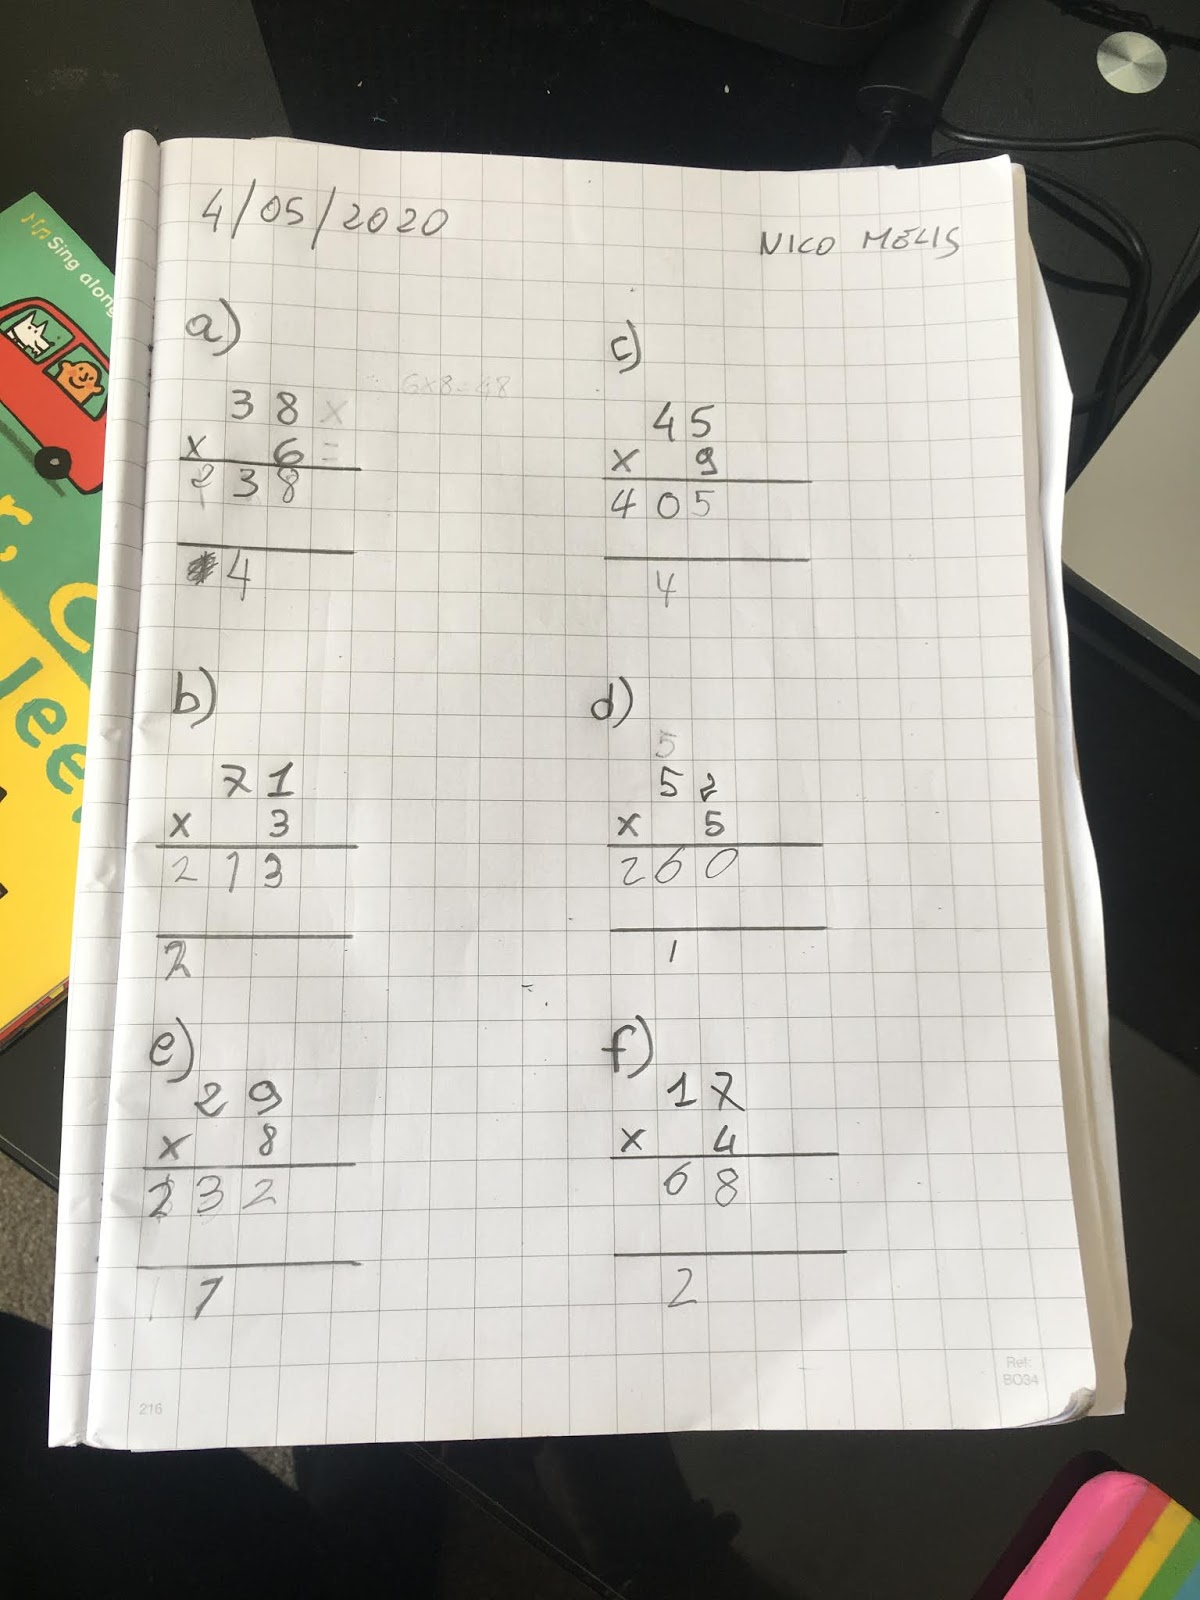 4/05/2020
NICO MELIS
♪♫ Sing along
a)
6x8=48
38 x
x 6 =
238
4
c)
45
x 9
405
4
b)
71
x 3
213
2
d)
5
52
x 5
260
1
e)
29
x 8
232
7
f)
17
x 4
68
2
216
Ref:
BO34